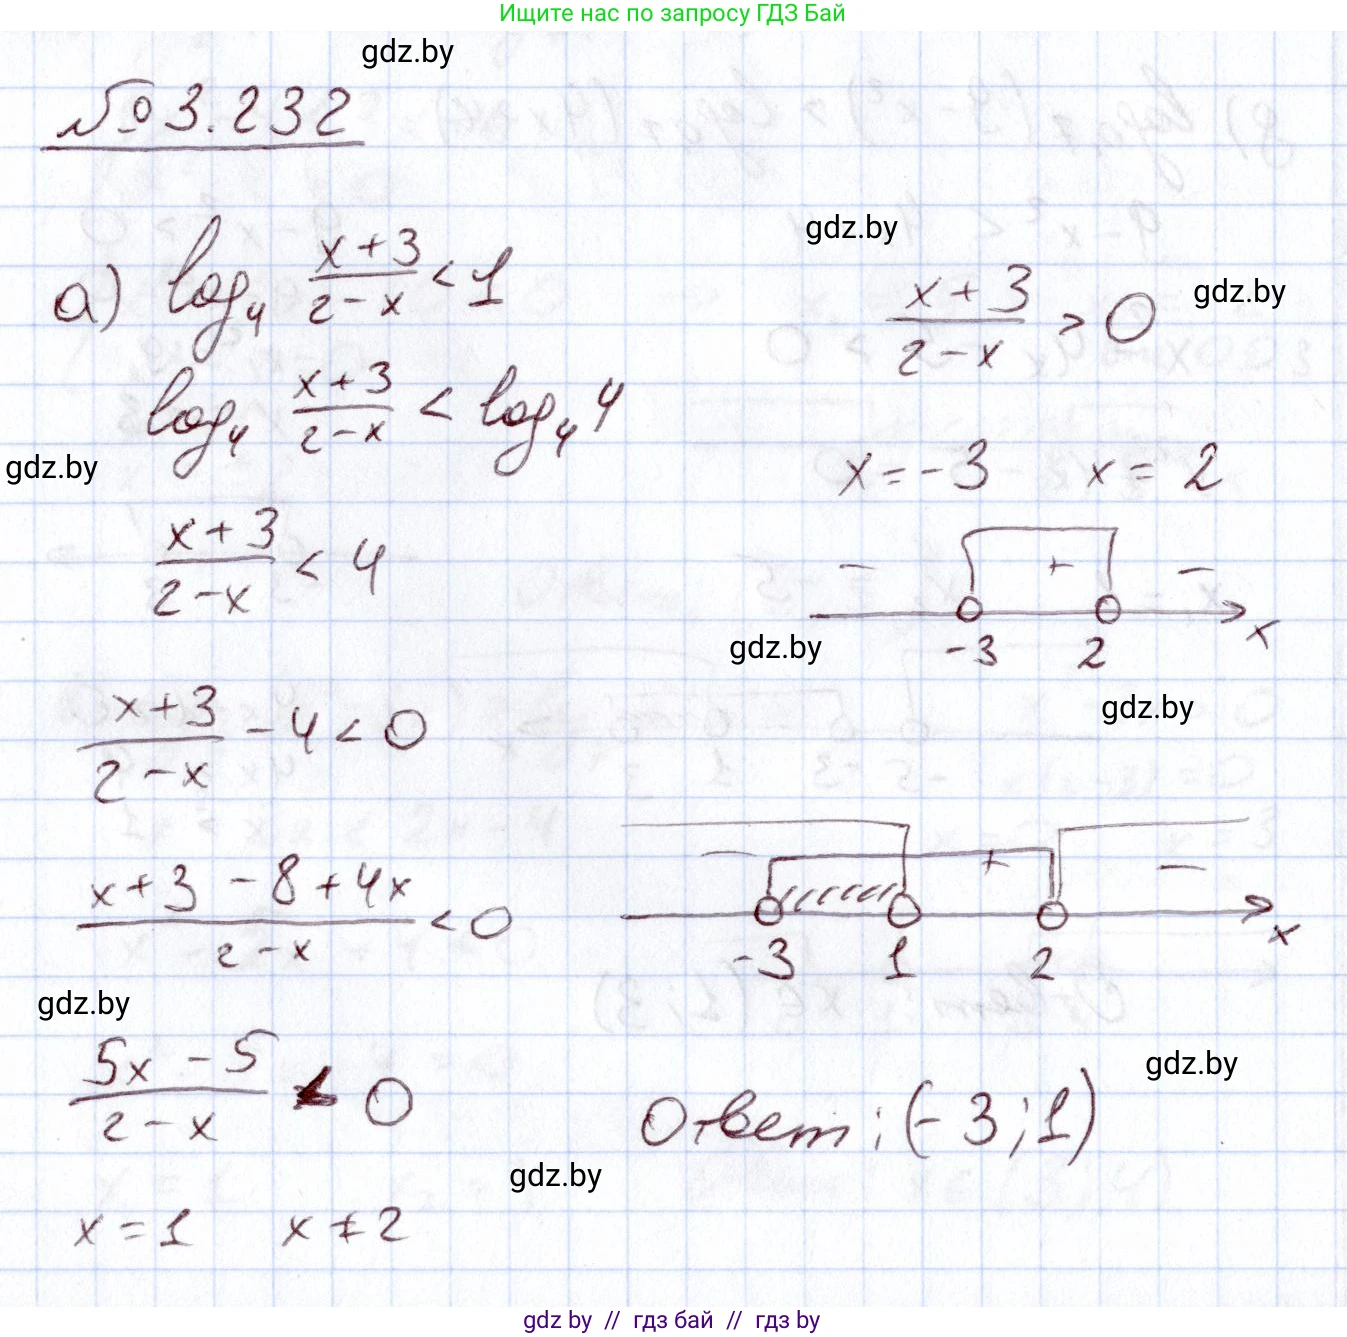 Ищите нас по запросу ГДЗ Бай
gdz.by
№ 3.232
gdz.by
а) log₄ (x+3)/(2-x) < 1
(x+3)/(2-x) > 0
gdz.by
log₄ (x+3)/(2-x) < log₄ 4
gdz.by
x = -3 x = 2
(x+3)/(2-x) < 4
- + -
-3 2 x
gdz.by
gdz.by
(x+3)/(2-x) - 4 < 0
(x+3 - 8 + 4x)/(2-x) < 0
- + -
-3 1 2 x
gdz.by
(5x - 5)/(2-x) < 0
gdz.by
Ответ: (-3; 1)
gdz.by
x = 1 x ≠ 2
gdz by // гдз бай // гдз by